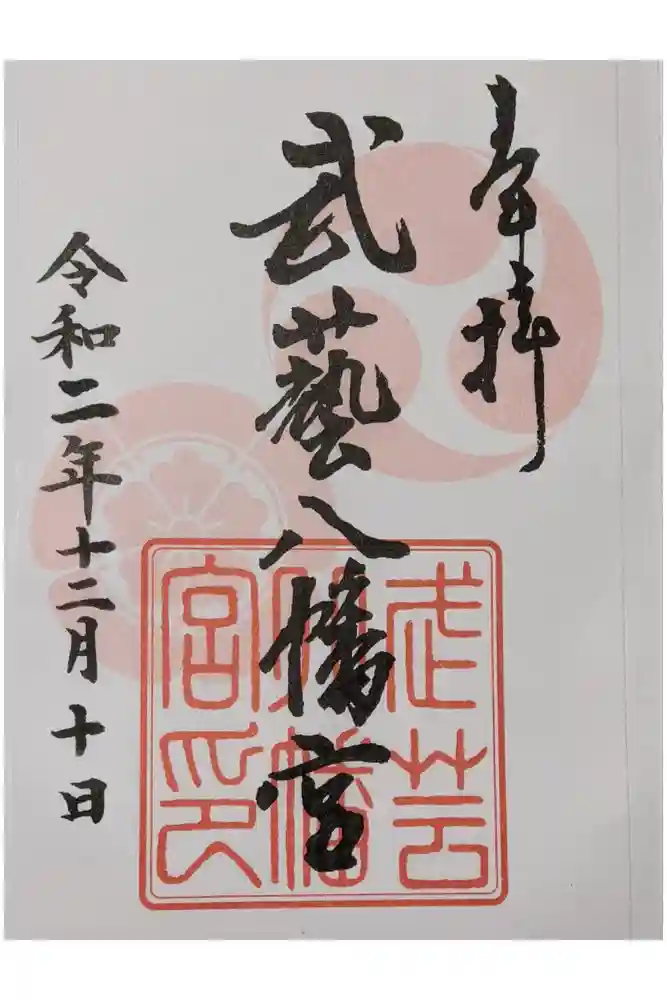 奉拝
武藝八幡宮
令和二年十二月十日
武芸八幡宮印